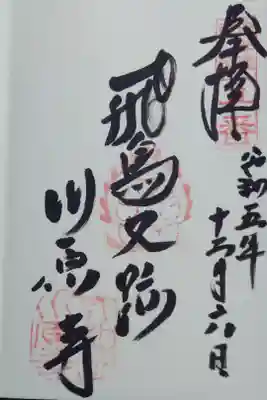 奉拝
令和五年
十二月六日
飛鳥史跡
川原寺